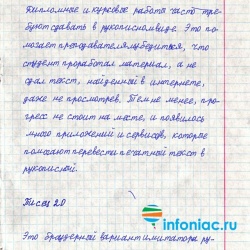 Дипломные и курсовые работы часто тре-
буют сдавать в рукописном виде. Это по-
могает преподавателям убедиться, что
студент проработал материал, а не
сдал текст, найденный в интернете,
даже не просмотрев. Тем не менее, про-
гресс не стоит на месте, и появилось
много приложений и сервисов, которые
помогают перевести печатный текст в
рукописный.
Писец 2.0
infoniac.ru
Это браузерный вариант имитатора ру-